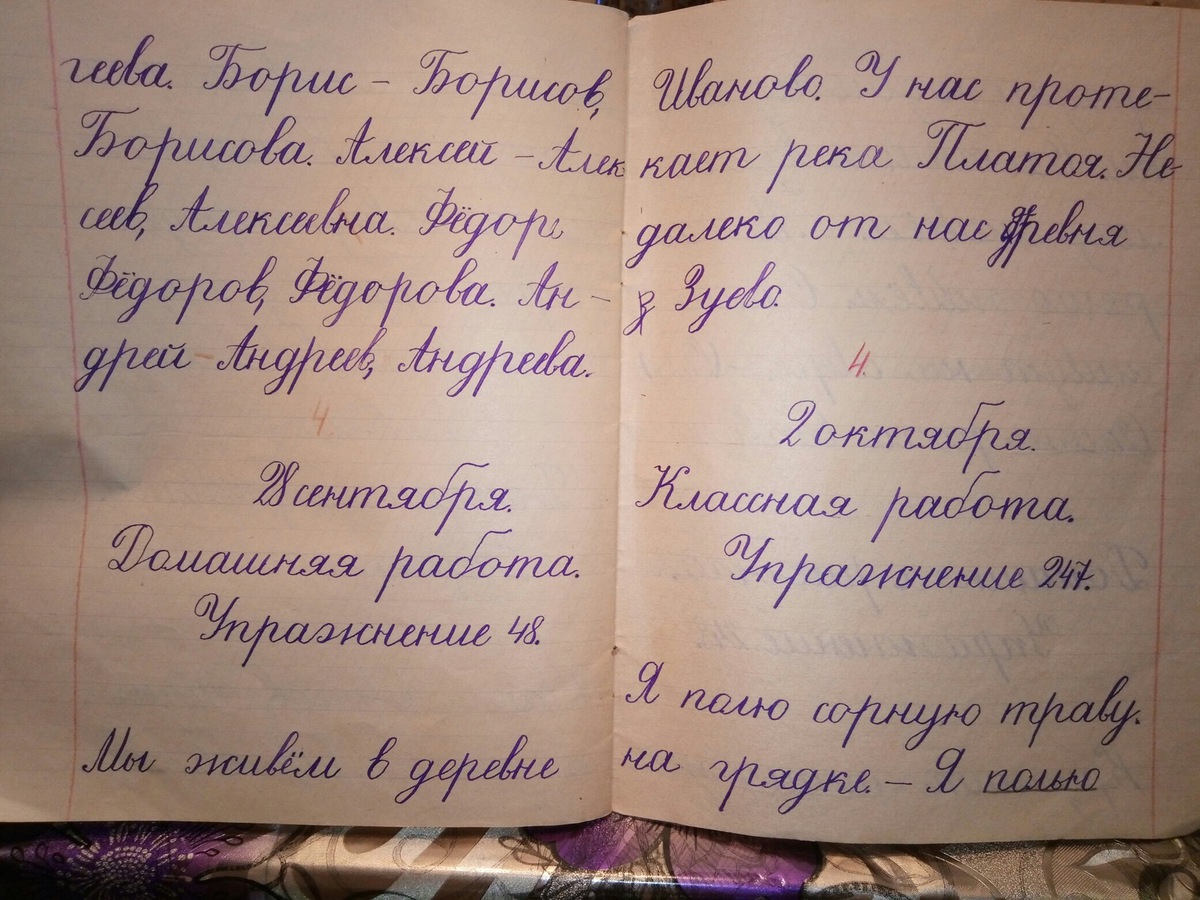 геева. Борис - Борисов,
Борисова. Алексей - Алек
сеев, Алексеевна. Фёдор
Фёдоров, Фёдорова. Ан-
дрей - Андреев, Андреева.
4.
28 сентября.
Домашняя работа.
Упражнение 48.
Мы живём в деревне
Иваново. У нас проте-
кает река Платоя. Не
далеко от нас древня
Зуево.
4.
2 октября.
Классная работа.
Упражнение 247.
Я полю сорную траву.
на грядке. - Я полью